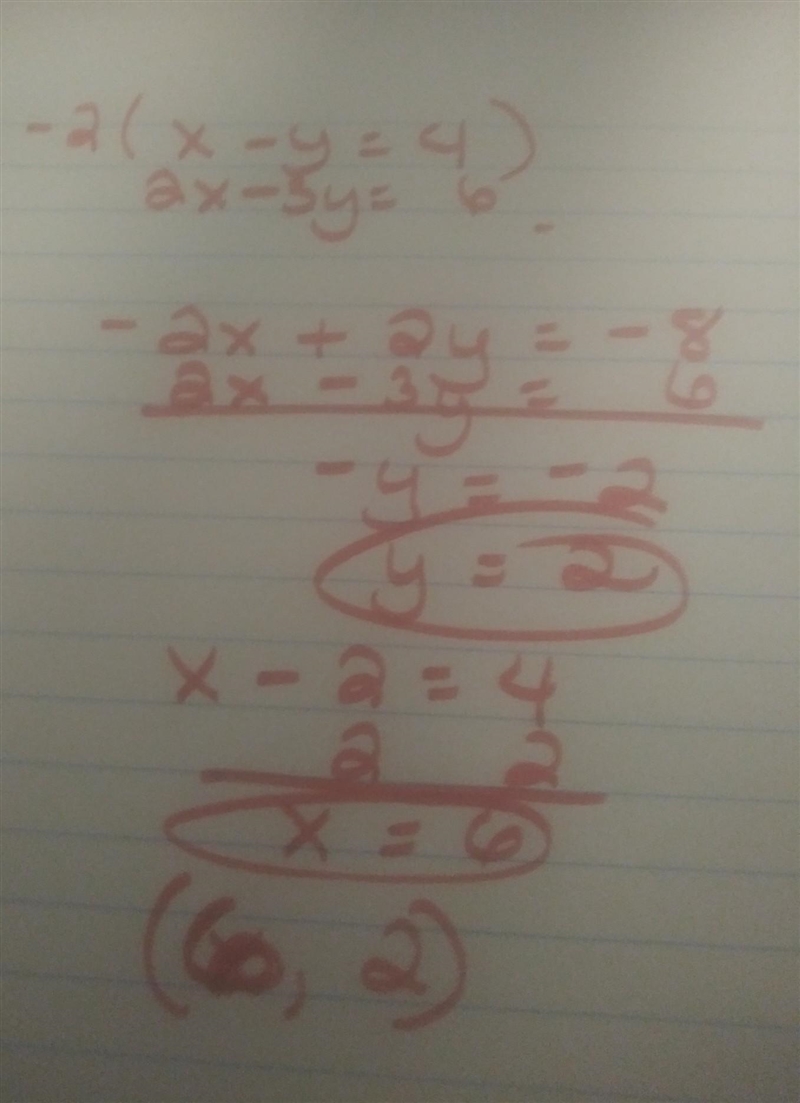 -2(x - y = 4)
2x - 3y = 6
-2x + 2y = -8
2x - 3y = 6
-y = -2
y = 2
x - 2 = 4
2 2
x = 6
(6, 2)